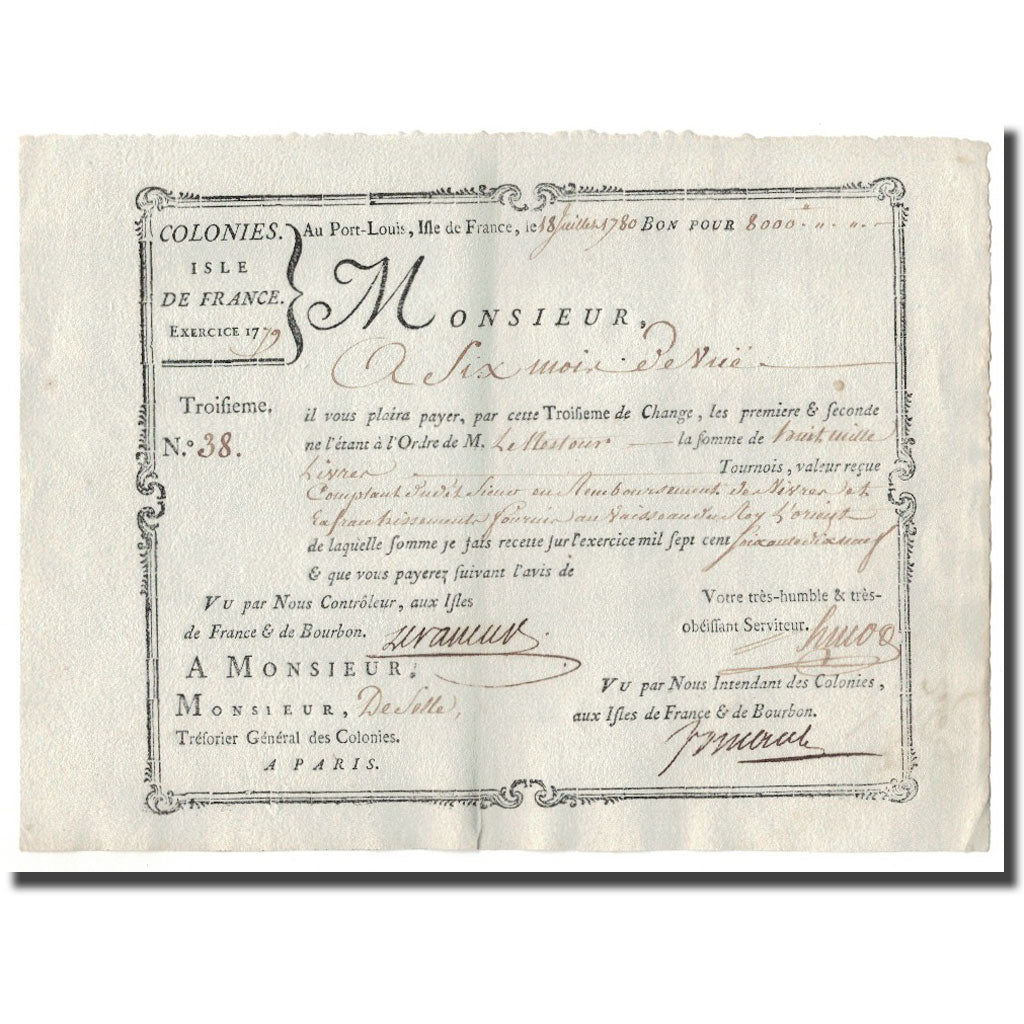 COLONIES.
ISLE
DE FRANCE.
EXERCICE 1779
Au Port-Louis, Isle de France, le 18 Juillet 1780 BON POUR 8000 " " " "
MONSIEUR,
A Six mois De Vuë
Troisieme.
N.º 38.
il vous plaira payer, par cette Troisieme de Change, les premiere & seconde
ne l'étant à l'Ordre de M. Le Mestour la somme de huit mille
Livres Tournois, valeur reçue
Comptant Dudit Sieur en Remboursement de Vivres et
Rafraichissements fournis au Vaisseau du Roy L'orient
de laquelle somme je fais recette sur l'exercice mil sept cent soixante dix neuf
& que vous payerez suivant l'avis de
Votre très-humble & très-
obéissant Serviteur.
VU par Nous Contrôleur, aux Isles
de France & de Bourbon.
VU par Nous Intendant des Colonies,
aux Isles de France & de Bourbon.
A MONSIEUR,
MONSIEUR, De Selle,
Trésorier Général des Colonies.
A PARIS.